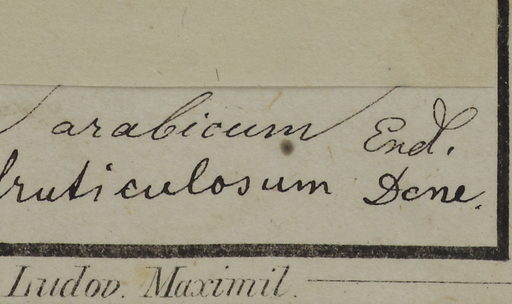 arabicum End.
fruticulosum Dcne.
Ludov. Maximil.